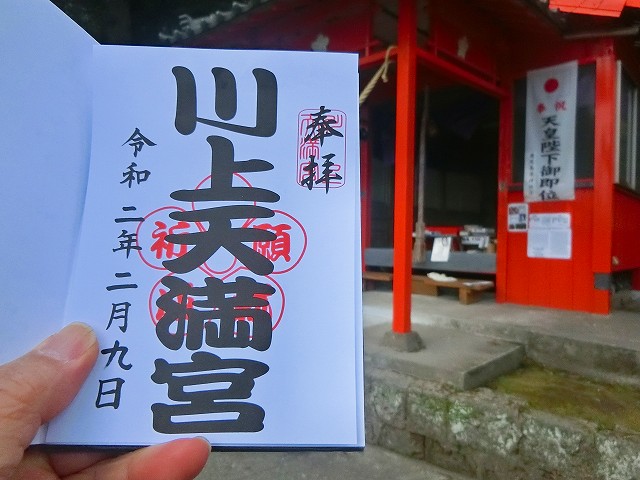 奉拝
川上天満宮
令和二年二月九日
祈願
奉祝
天皇陛下御即位